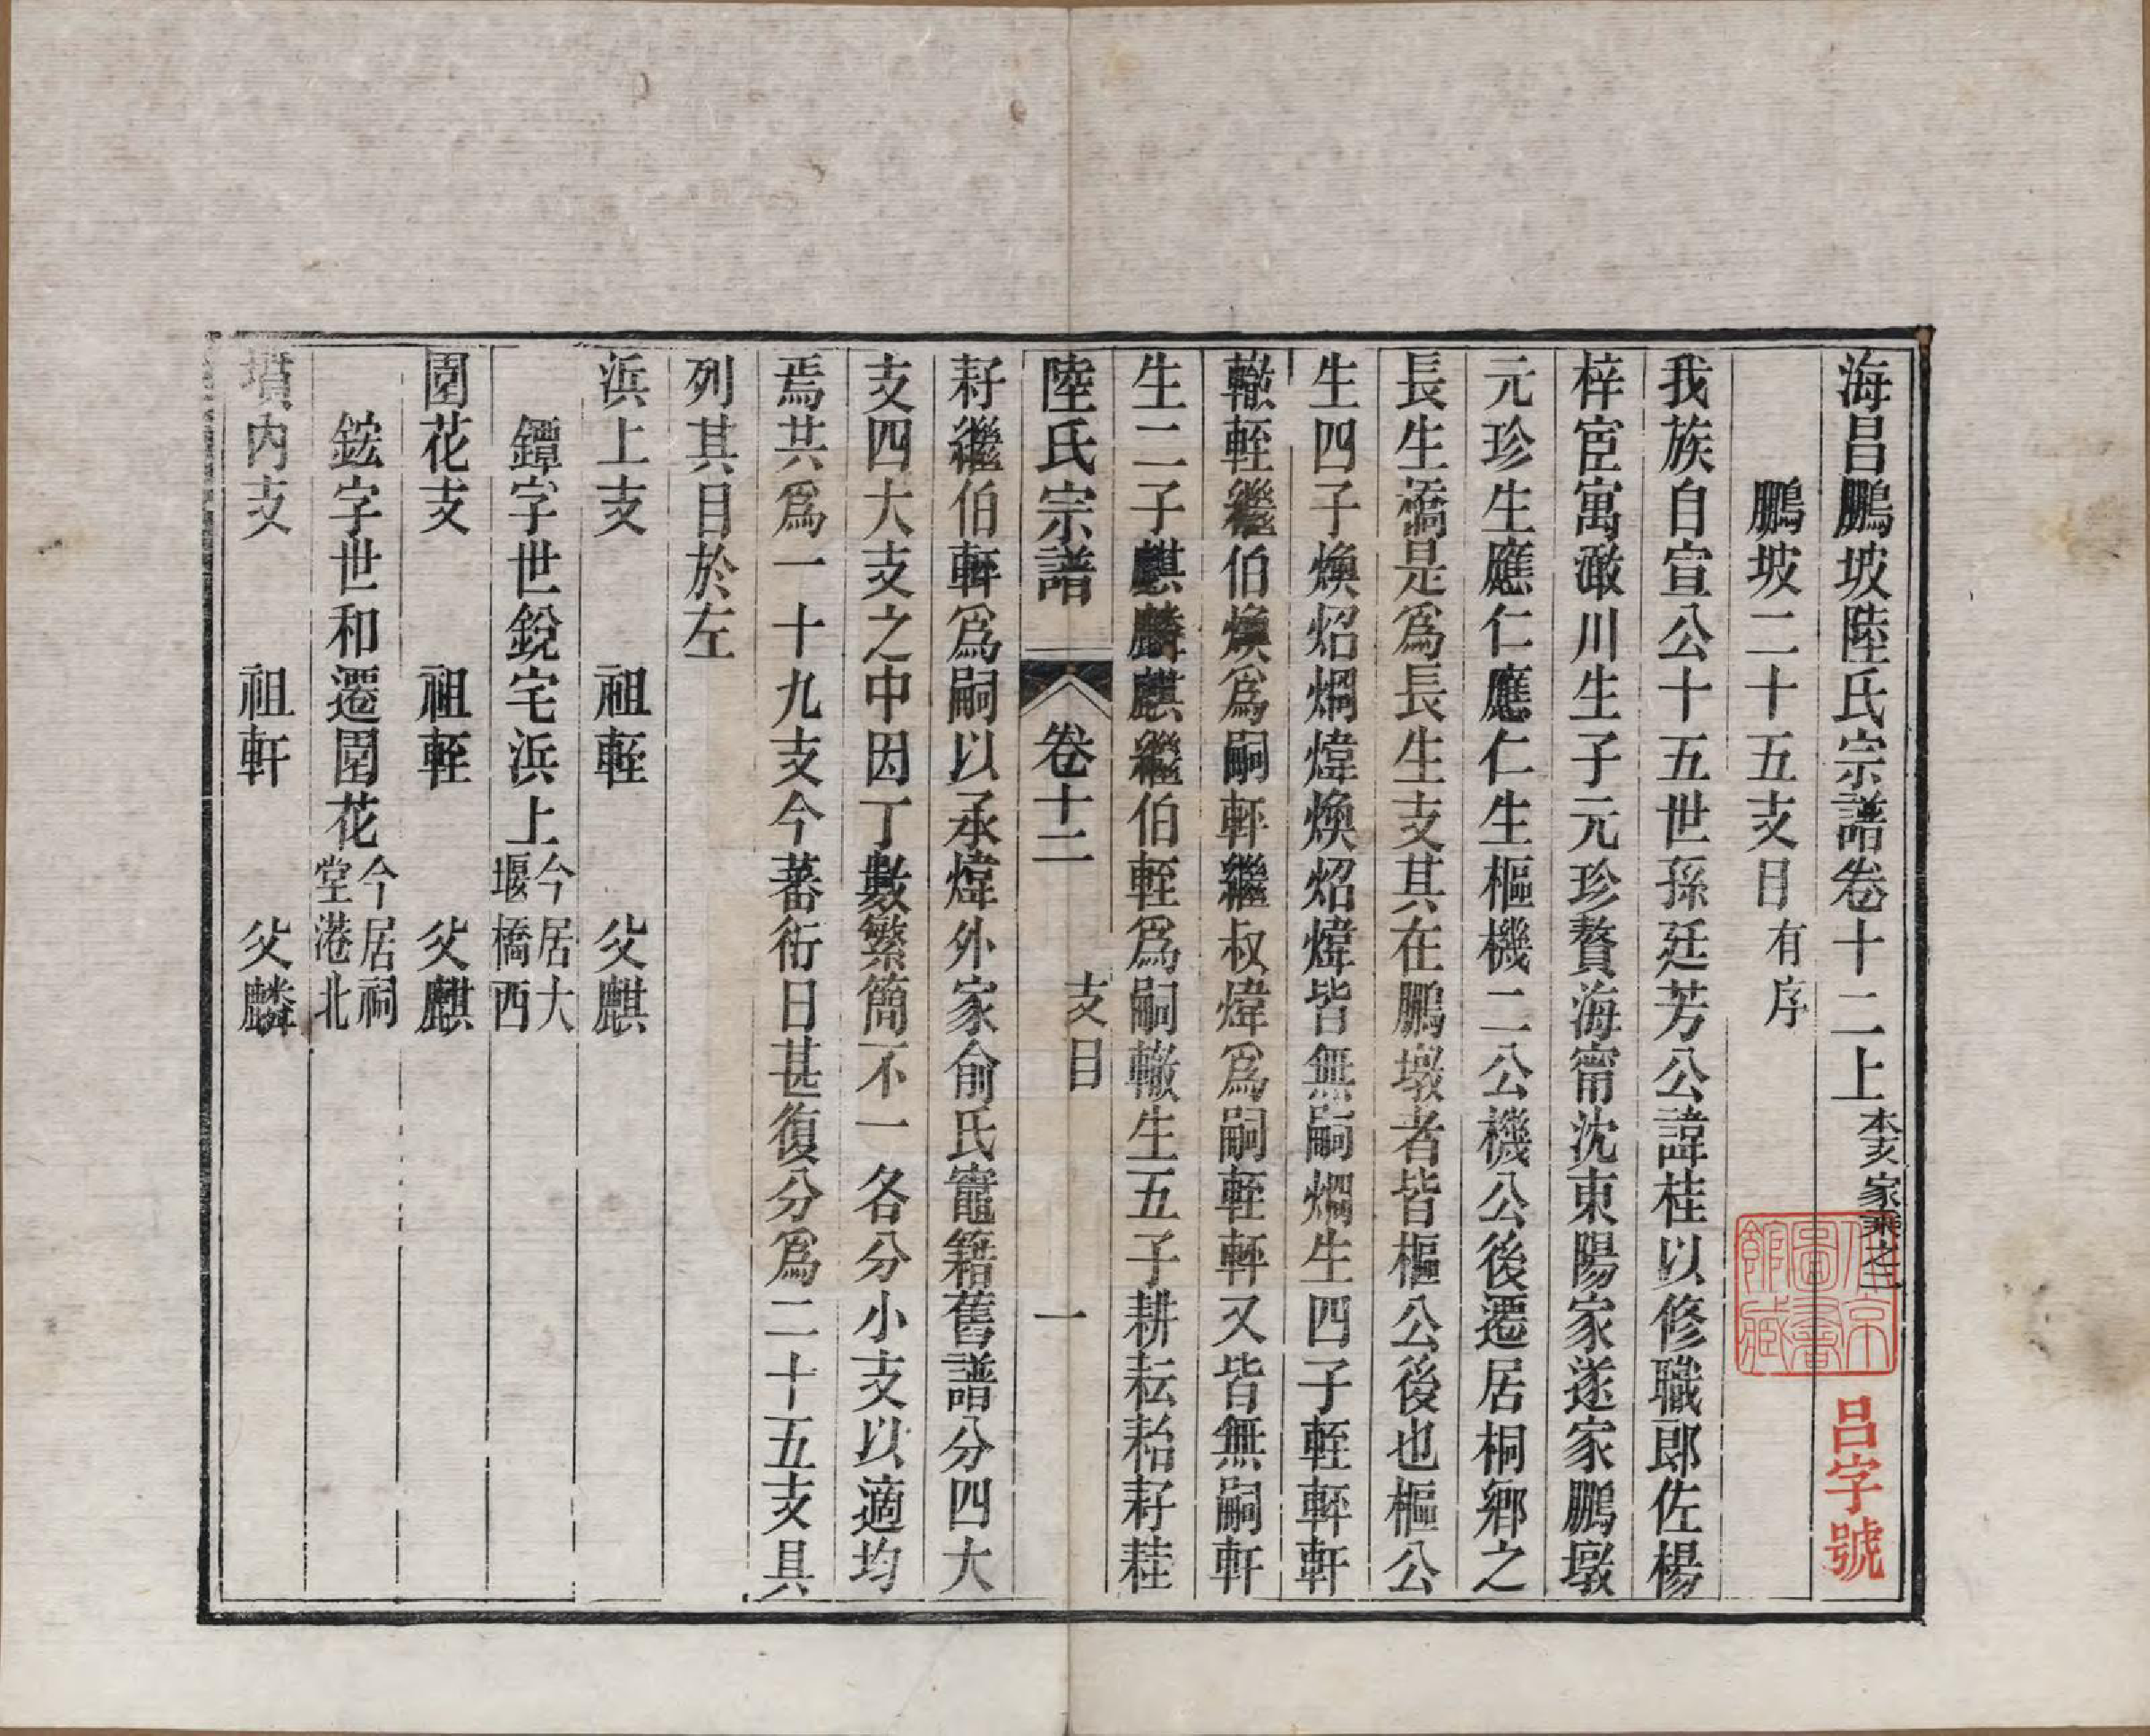 海昌鵬坡陸氏宗譜卷十二上 本支家乘之二
呂字號
北京圖書館藏
鵬坡二十五支目 有序
我族自宣公十五世孫廷芳公諱桂以修職郎佐楊
梓宦寓澉川生子元珍贅海甯沈東陽家遂家鵬墩
元珍生應仁應仁生樞機二公機公後遷居桐鄉之
長生橋是爲長生支其在鵬墩者皆樞公後也樞公
生四子煥炤烱煒煥炤煒皆無嗣烱生四子輊軿軒
轍輊繼伯煥爲嗣軿繼叔煒爲嗣輊軿又皆無嗣軒
生二子麒麟麒繼伯輊爲嗣轍生五子耕耘耛耔耭
陸氏宗譜 卷十二 支目 一
耔繼伯軿爲嗣以承煒外家俞氏竈籍舊譜分四大
支四大支之中因丁數繁簡不一各分小支以適均
焉共爲一十九支今蕃衍日甚復分爲二十五支具
列其目於左
浜上支 祖輊 父麒
鐔字世銳宅浜上 今居大堰橋西
園花支 祖輊 父麒
鋐字世和遷園花 今居祠堂港北
墳内支 祖軒 父麟